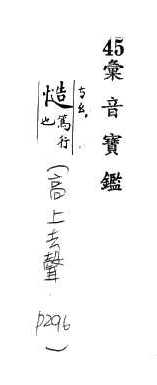 45彙音寶鑑
慥篤行也
(高上去聲 p296)